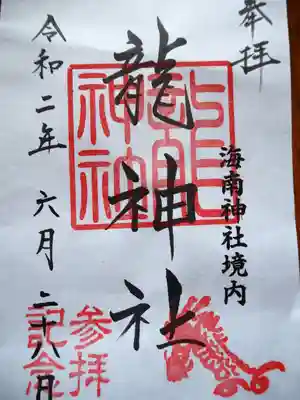 奉拝
海南神社境内
龍神社
龍神社
令和二年 六月 二十八日
参拝
記念